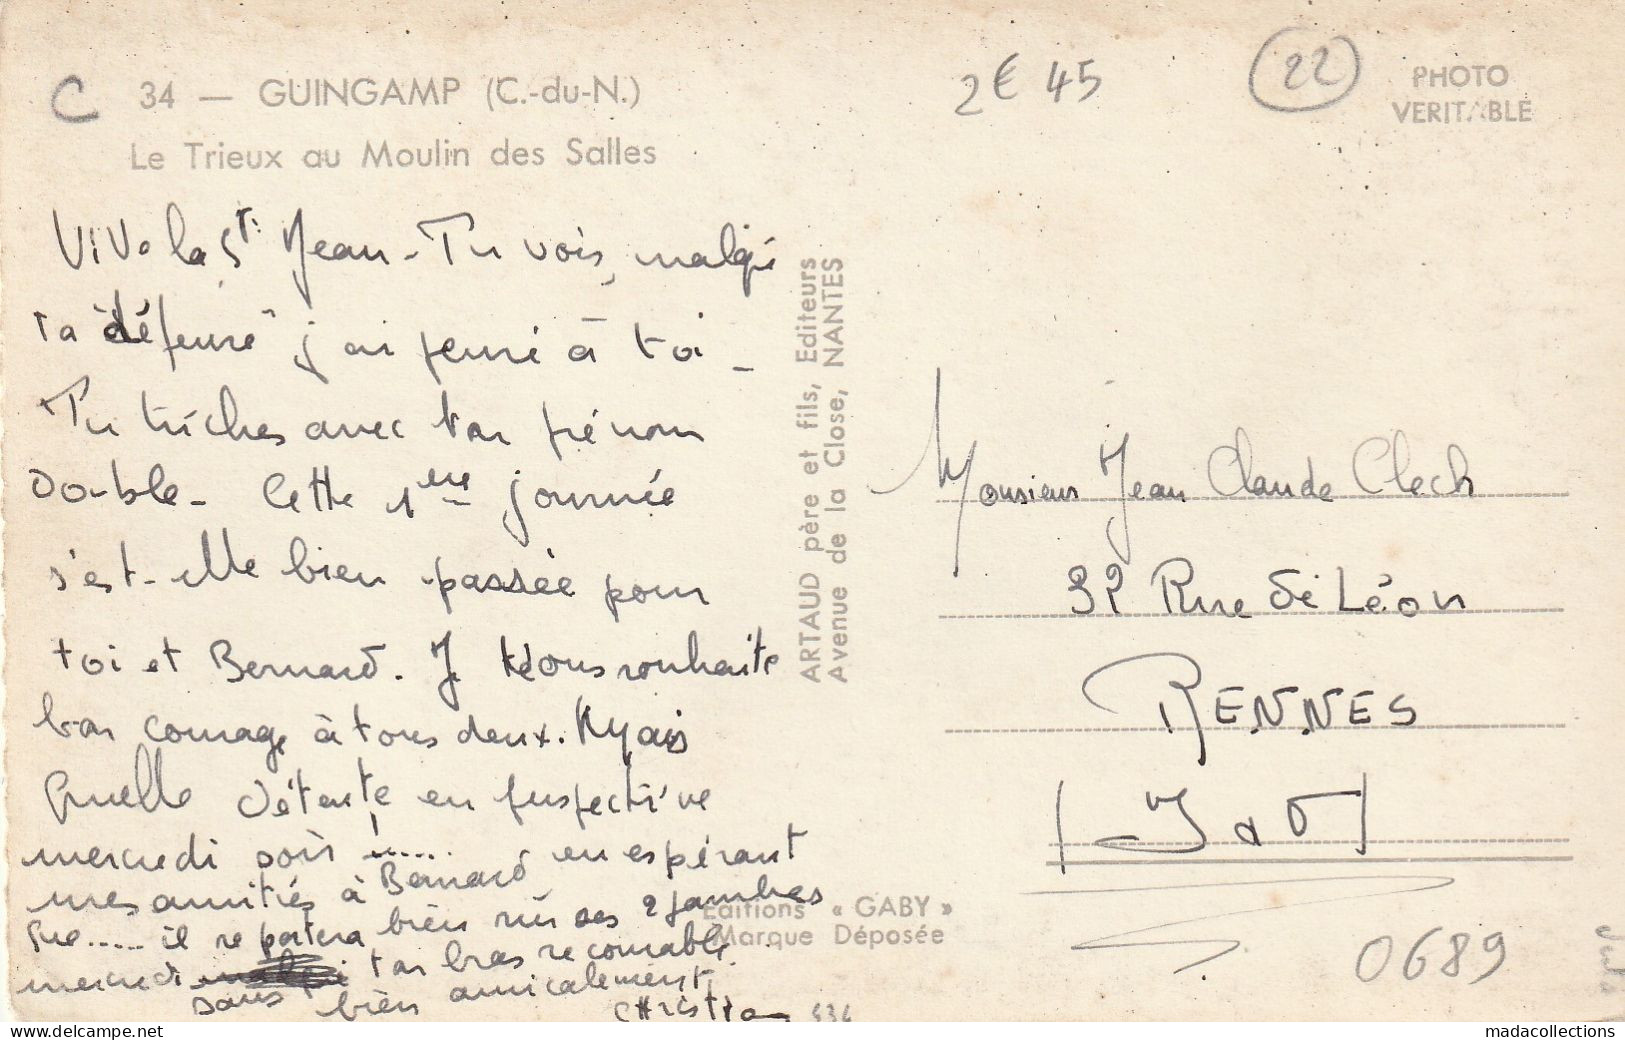 C 34 — GUINGAMP (C.-du-N.)
Le Trieux au Moulin des Salles
2€45
22
PHOTO
VERITABLE
Vive la St Jean - Tu vois, malgré
ta "défense" j'ai pensé à toi -
Tu triches avec ton prénom
Double - Cette 1ère journée
s'est-elle bien passée pour
toi et Bernard. Je vous souhaite
bon courage à tous deux. Mais
quelle détente en perspective
mercredi soir !..... en espérant
mes amitiés à Bernard
que..... il se portera bien sur ses 2 jambes
mercredi sans ton bras secourable.
bien amicalement.
Christian
ARTAUD père et fils, Editeurs
Avenue de la Close, NANTES
Editions « GABY »
Marque Déposée
Monsieur Jean Claude Clech
32 Rue de Léon
RENNES
(I & V)
0689
madacollections